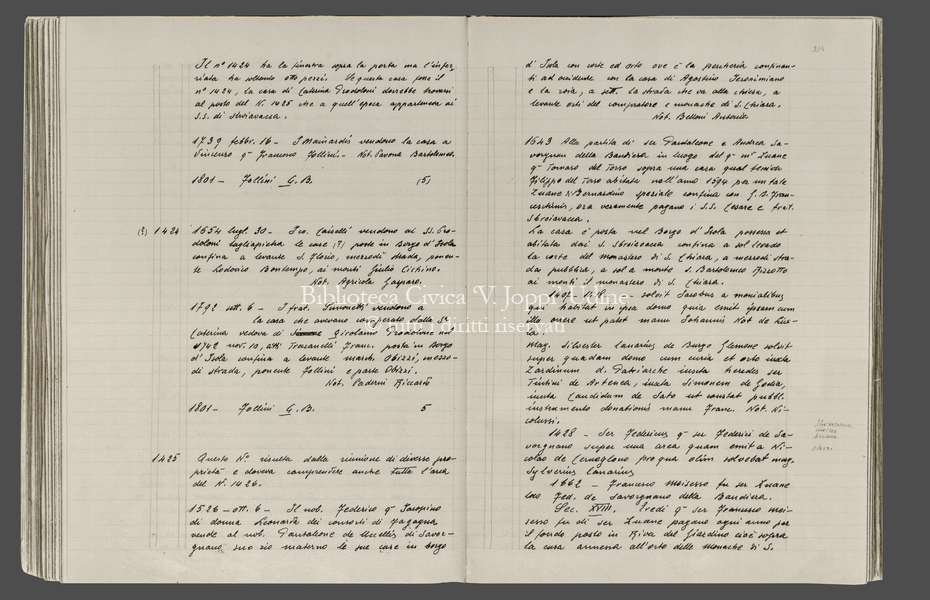 Il nº 1424 ha la finestra sopra la porta ma l'infer-
riata ha soltanto otto pezzi. Se questa casa fosse il
nº 1424, la casa di Caterina Prodoloni dovrebbe trovarsi
al posto del N. 1425 che a quell'epoca apparteneva ai
S.S. di Sbroiavacca.
1739 febbr. 16 - I Mainardis vendono la casa a
Vincenzo qm Francesco Follini. - Not. Pavona Bartolomeo.
1801 - Follini G. B. (5)
(?) 1424
1654 lugl. 30 - Ico. Caiselli vendono ai SS. Pro-
doloni tagliapietra le case (?) poste in Borgo d'Isola
confina a levante S. Florio, mezzodì strada, ponen-
te Lodovico Bontempo, ai monti Giulio Cichino.
Not. Agricola Gasparo.
1792 sett. 6 - I frat. Simonetti vendono a
la casa che avevano comperato dalla Sa
Caterina vedova di Girolamo Prodolone nel
1742 nov. 10, atti Tracanelli Franc. posta in Borgo
d'Isola confina a levante march. Obizzi, mezzo-
dì strada, ponente Follini e parte Obizzi.
Not. Paderni Riccardo
1801 - Follini G. B. 5
1425
Questo Nº risulta dalla riunione di diverse pro-
prietà e doveva comprendere anche tutta l'area
del N. 1426.
1526 - ott. 6 - Il nob. Federico qm Iacopino
di donna Leonarda dei consorti di Fagagna
vende al nob. Pantaleone de Uccellis di Savor-
gnano suo zio materno le sue case in borgo
214
d'Isola con corte ed orto ove è la pescheria confinan-
ti ad occidente con la casa di Agostino Jeronimiano
e la roia, a sett. la strada che va alla chiesa, a
levante orti del compratore e monache di S. Chiara.
Not. Belloni Antonio.
1543 Alla partita di ser Pantaleone e Andrea Sa-
vorgnan della Bandiera in luogo del qm mr Zuane
qm Tornaro del Torso sopra una casa qual teniva
Filippo del Torso abitata nell'anno 1594 per un tale
Zuane Bernardino speziale confina con G. B. Fran-
ceschinis, ora veramente pagano i S.S. Cesare e frat.
Sbroiavacca.
La casa è posta nel Borgo d'Isola possessa et
abitata dai S. Sbroiavacca confina a sol levado
la corte del monastero di S. Chiara, a mezzodì stra-
da pubblica, a sol a monte S. Bartolomeo Rizzotto
ai monti il monastero di S. Chiara.
solvit Jacobus a monialibus
qui habitat in ipsa domo quia emit ipsam cum
illo onere ut patet manu Johannis Not de
Mag. Silvester Lanarius de Burgo Glemone solvit
super quadam domo cum curia et orto iuxta
Zardinum d. Patriarche iuxta heredes ser
Tintini de Artenea, iuxta Simonem de Godia,
iuxta Candidum de Sato ut constat pubbl.
instrumento donationis manu Franc. Not. Ni-
colussi.
1428 - Ser Federicus qm ser Federici de Sa-
vorgnano super una area quam emit a Ni-
colao de Cernoglono pro qua olim solvebat mag.
Sylverius Lanarius
1662 - Francesco Moisesso fu ser Zuane
loco Fed. de Savorgnano della Bandiera.
Sec. XVIII. Eredi qm ser Francesco Moi-
sesso fu di ser Zuane pagano ogni anno per
il fondo posto in Riva del Giardino cioè sopra
la casa annessa all'orto delle monache di S.
Biblioteca Civica 'V. Joppi' Udine
© tutti i diritti riservati